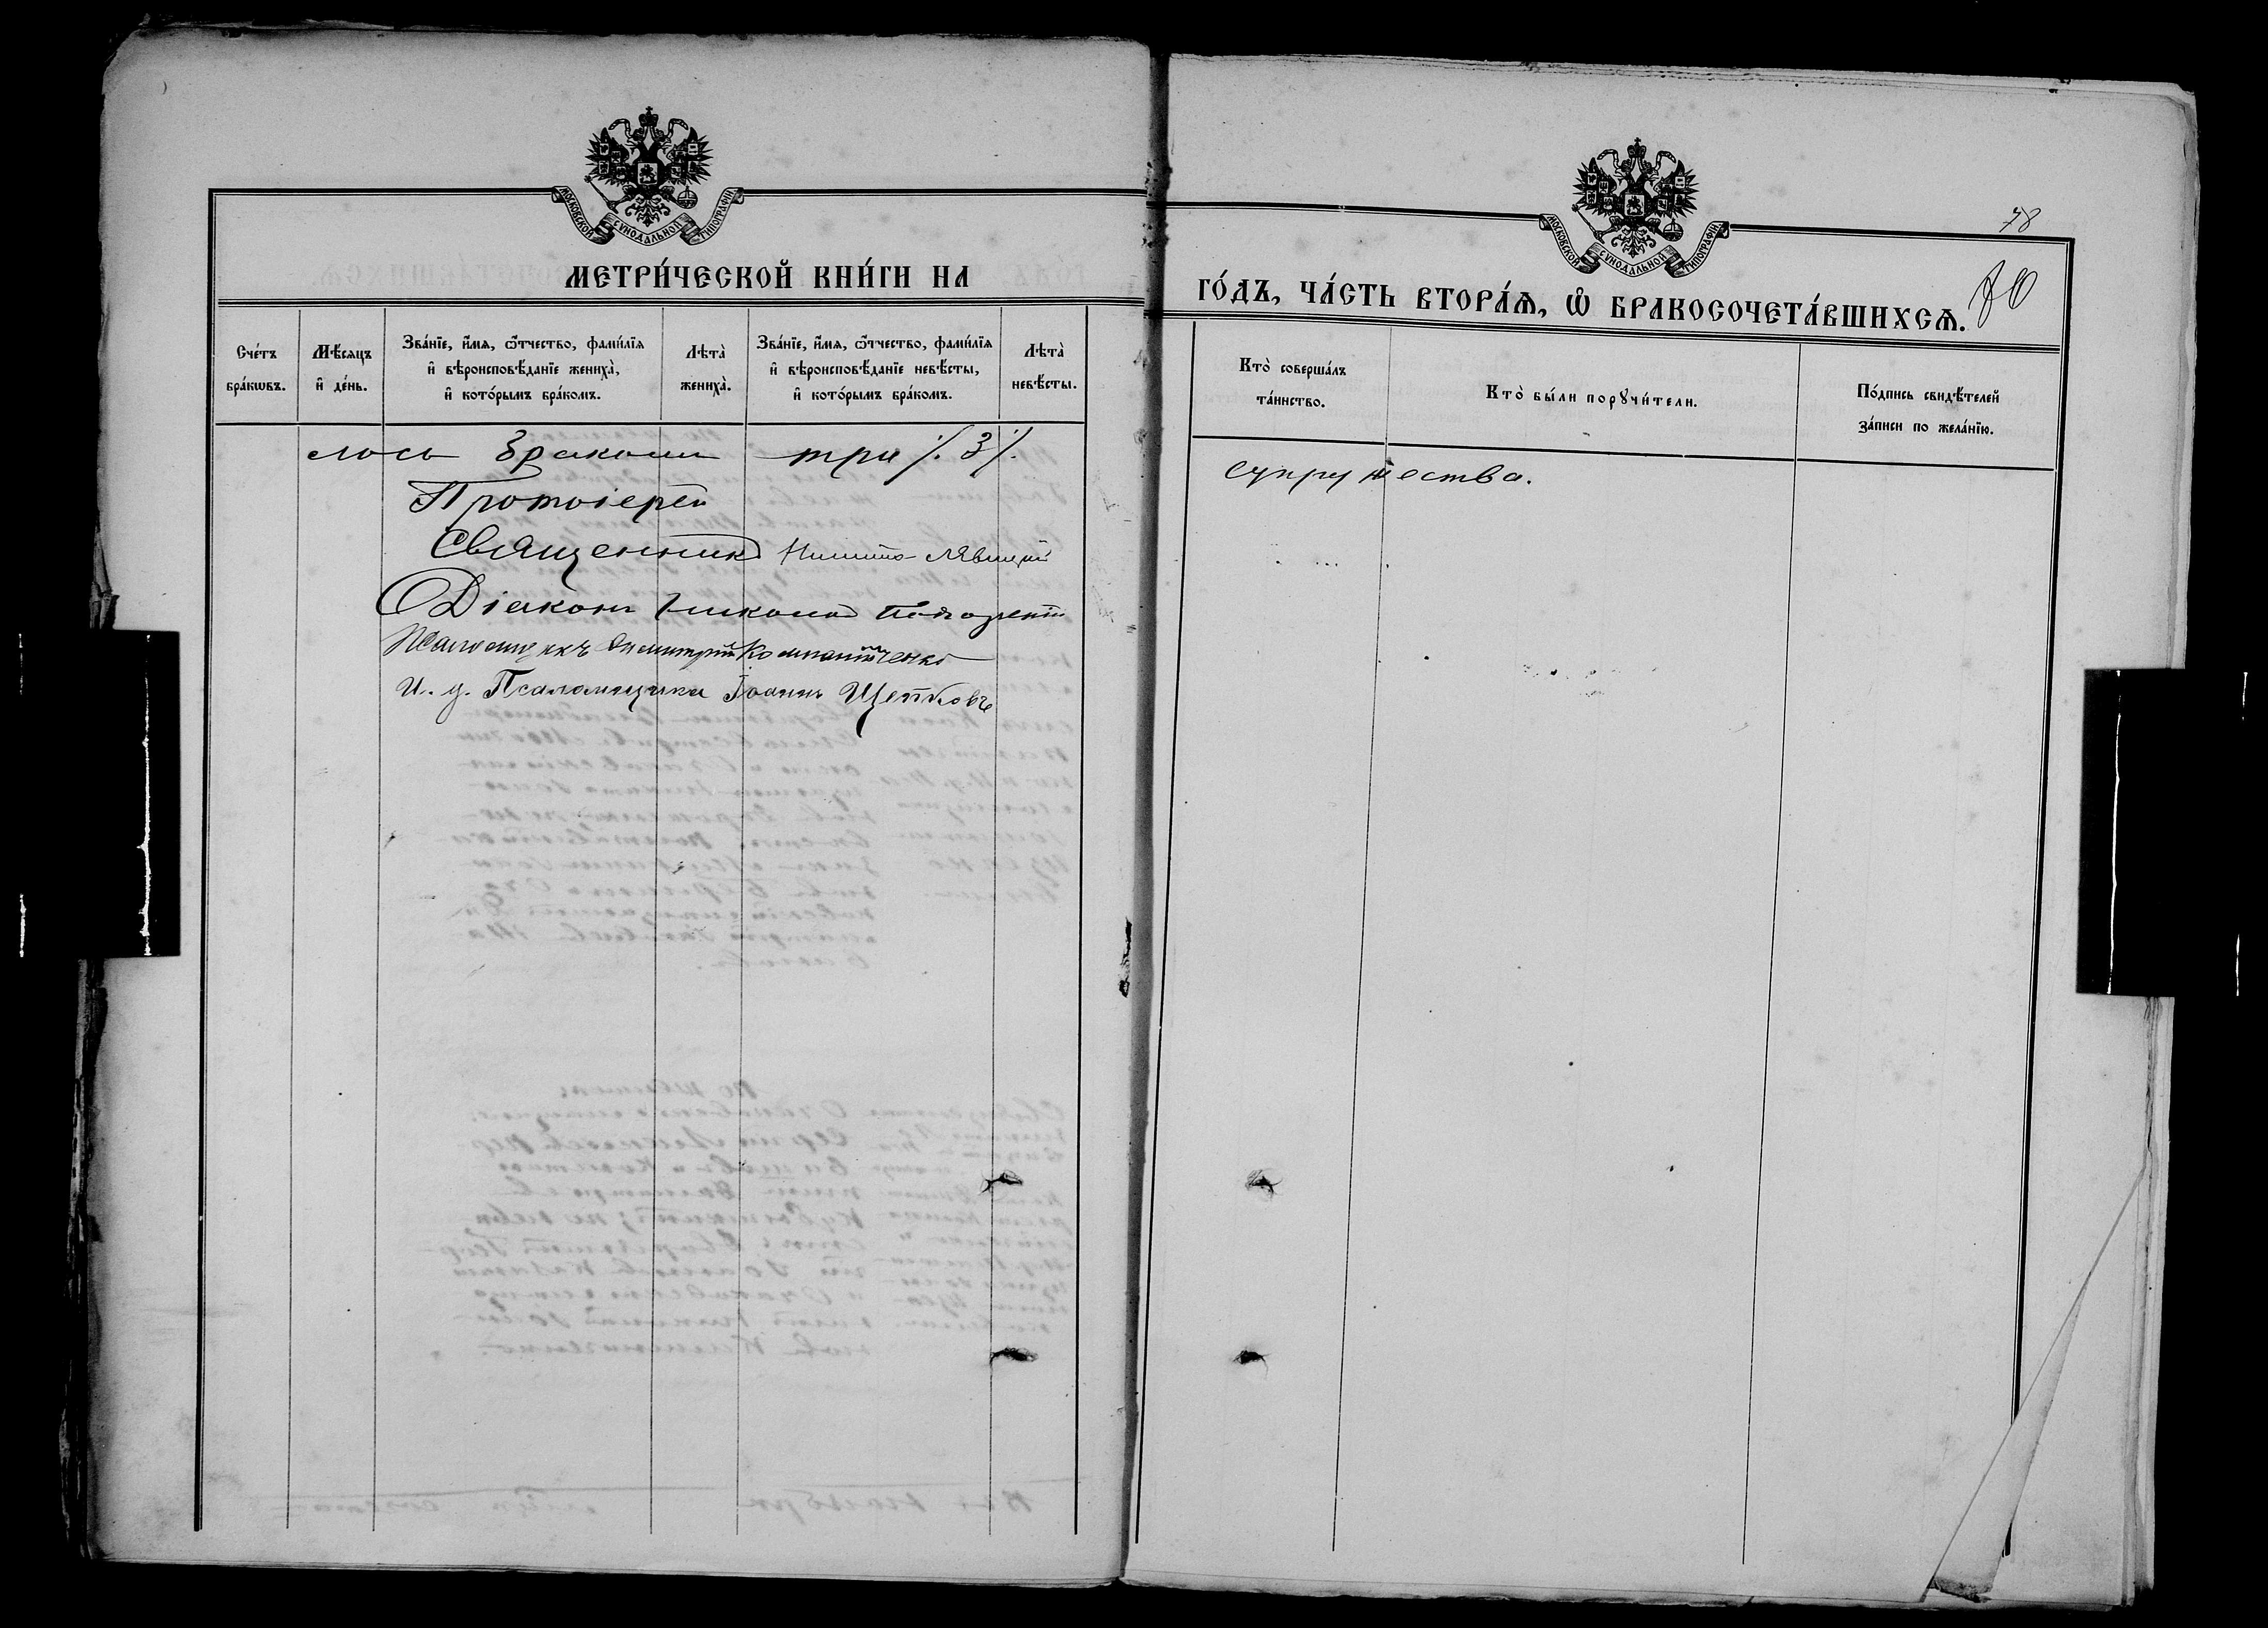 МОСКОВСКОЙ СѴНОДАЛЬНОЙ ТИПОГРАФІИ
МЕТРИ́ЧЕСКОЙ КНИ́ГИ НА
Сче́тъ бра́кѡвъ.
Мѣ́сяцъ и҆ де́нь.
Зва́нїе, и҆́мя, ѻ҆́тчество, фами́лїя и҆ вѣроисповѣ́данїе жениха̀, и҆ кото́рымъ бра́комъ.
Лѣта̀ жениха̀.
Зва́нїе, и҆́мя, ѻ҆́тчество, фами́лїя и҆ вѣроисповѣ́данїе невѣ́сты, и҆ кото́рымъ бра́комъ.
Лѣта̀ невѣ́сты.
лось браковъ три /. 3 /.
Протоіерей
Священникъ
Діаконъ Николай
Псаломщикъ Димитрій Компанійченко
И. д. Псаломщика Іоаннъ Щетковъ
МОСКОВСКОЙ СѴНОДАЛЬНОЙ ТИПОГРАФІИ
78
ГО́ДЪ, ЧА́СТЬ ВТОРА́Ѧ, Ѡ҆ БРАКОСОЧЕТА́ВШИХСѦ.
Кто̀ соверша́лъ та́инство.
Кто̀ бы́ли порꙋчи́тели.
По́дпись свидѣ́телей за́писи по жела́нїю.
супружества.